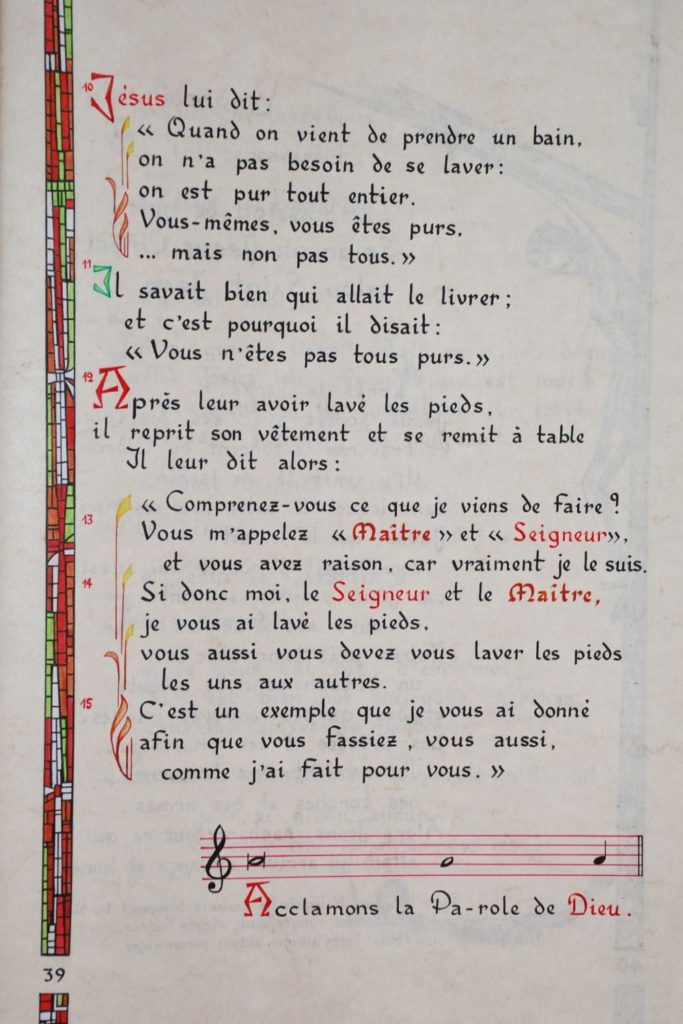 10 Jésus lui dit:
« Quand on vient de prendre un bain,
on n'a pas besoin de se laver:
on est pur tout entier.
Vous-mêmes, vous êtes purs,
... mais non pas tous. »
11 Il savait bien qui allait le livrer;
et c'est pourquoi il disait:
« Vous n'êtes pas tous purs. »
12 Après leur avoir lavé les pieds,
il reprit son vêtement et se remit à table
Il leur dit alors:
« Comprenez-vous ce que je viens de faire?
13 Vous m'appelez « Maître » et « Seigneur »,
et vous avez raison, car vraiment je le suis.
14 Si donc moi, le Seigneur et le Maître,
je vous ai lavé les pieds,
vous aussi vous devez vous laver les pieds
les uns aux autres.
15 C'est un exemple que je vous ai donné
afin que vous fassiez, vous aussi,
comme j'ai fait pour vous. »
Acclamons la Pa-role de Dieu.
39